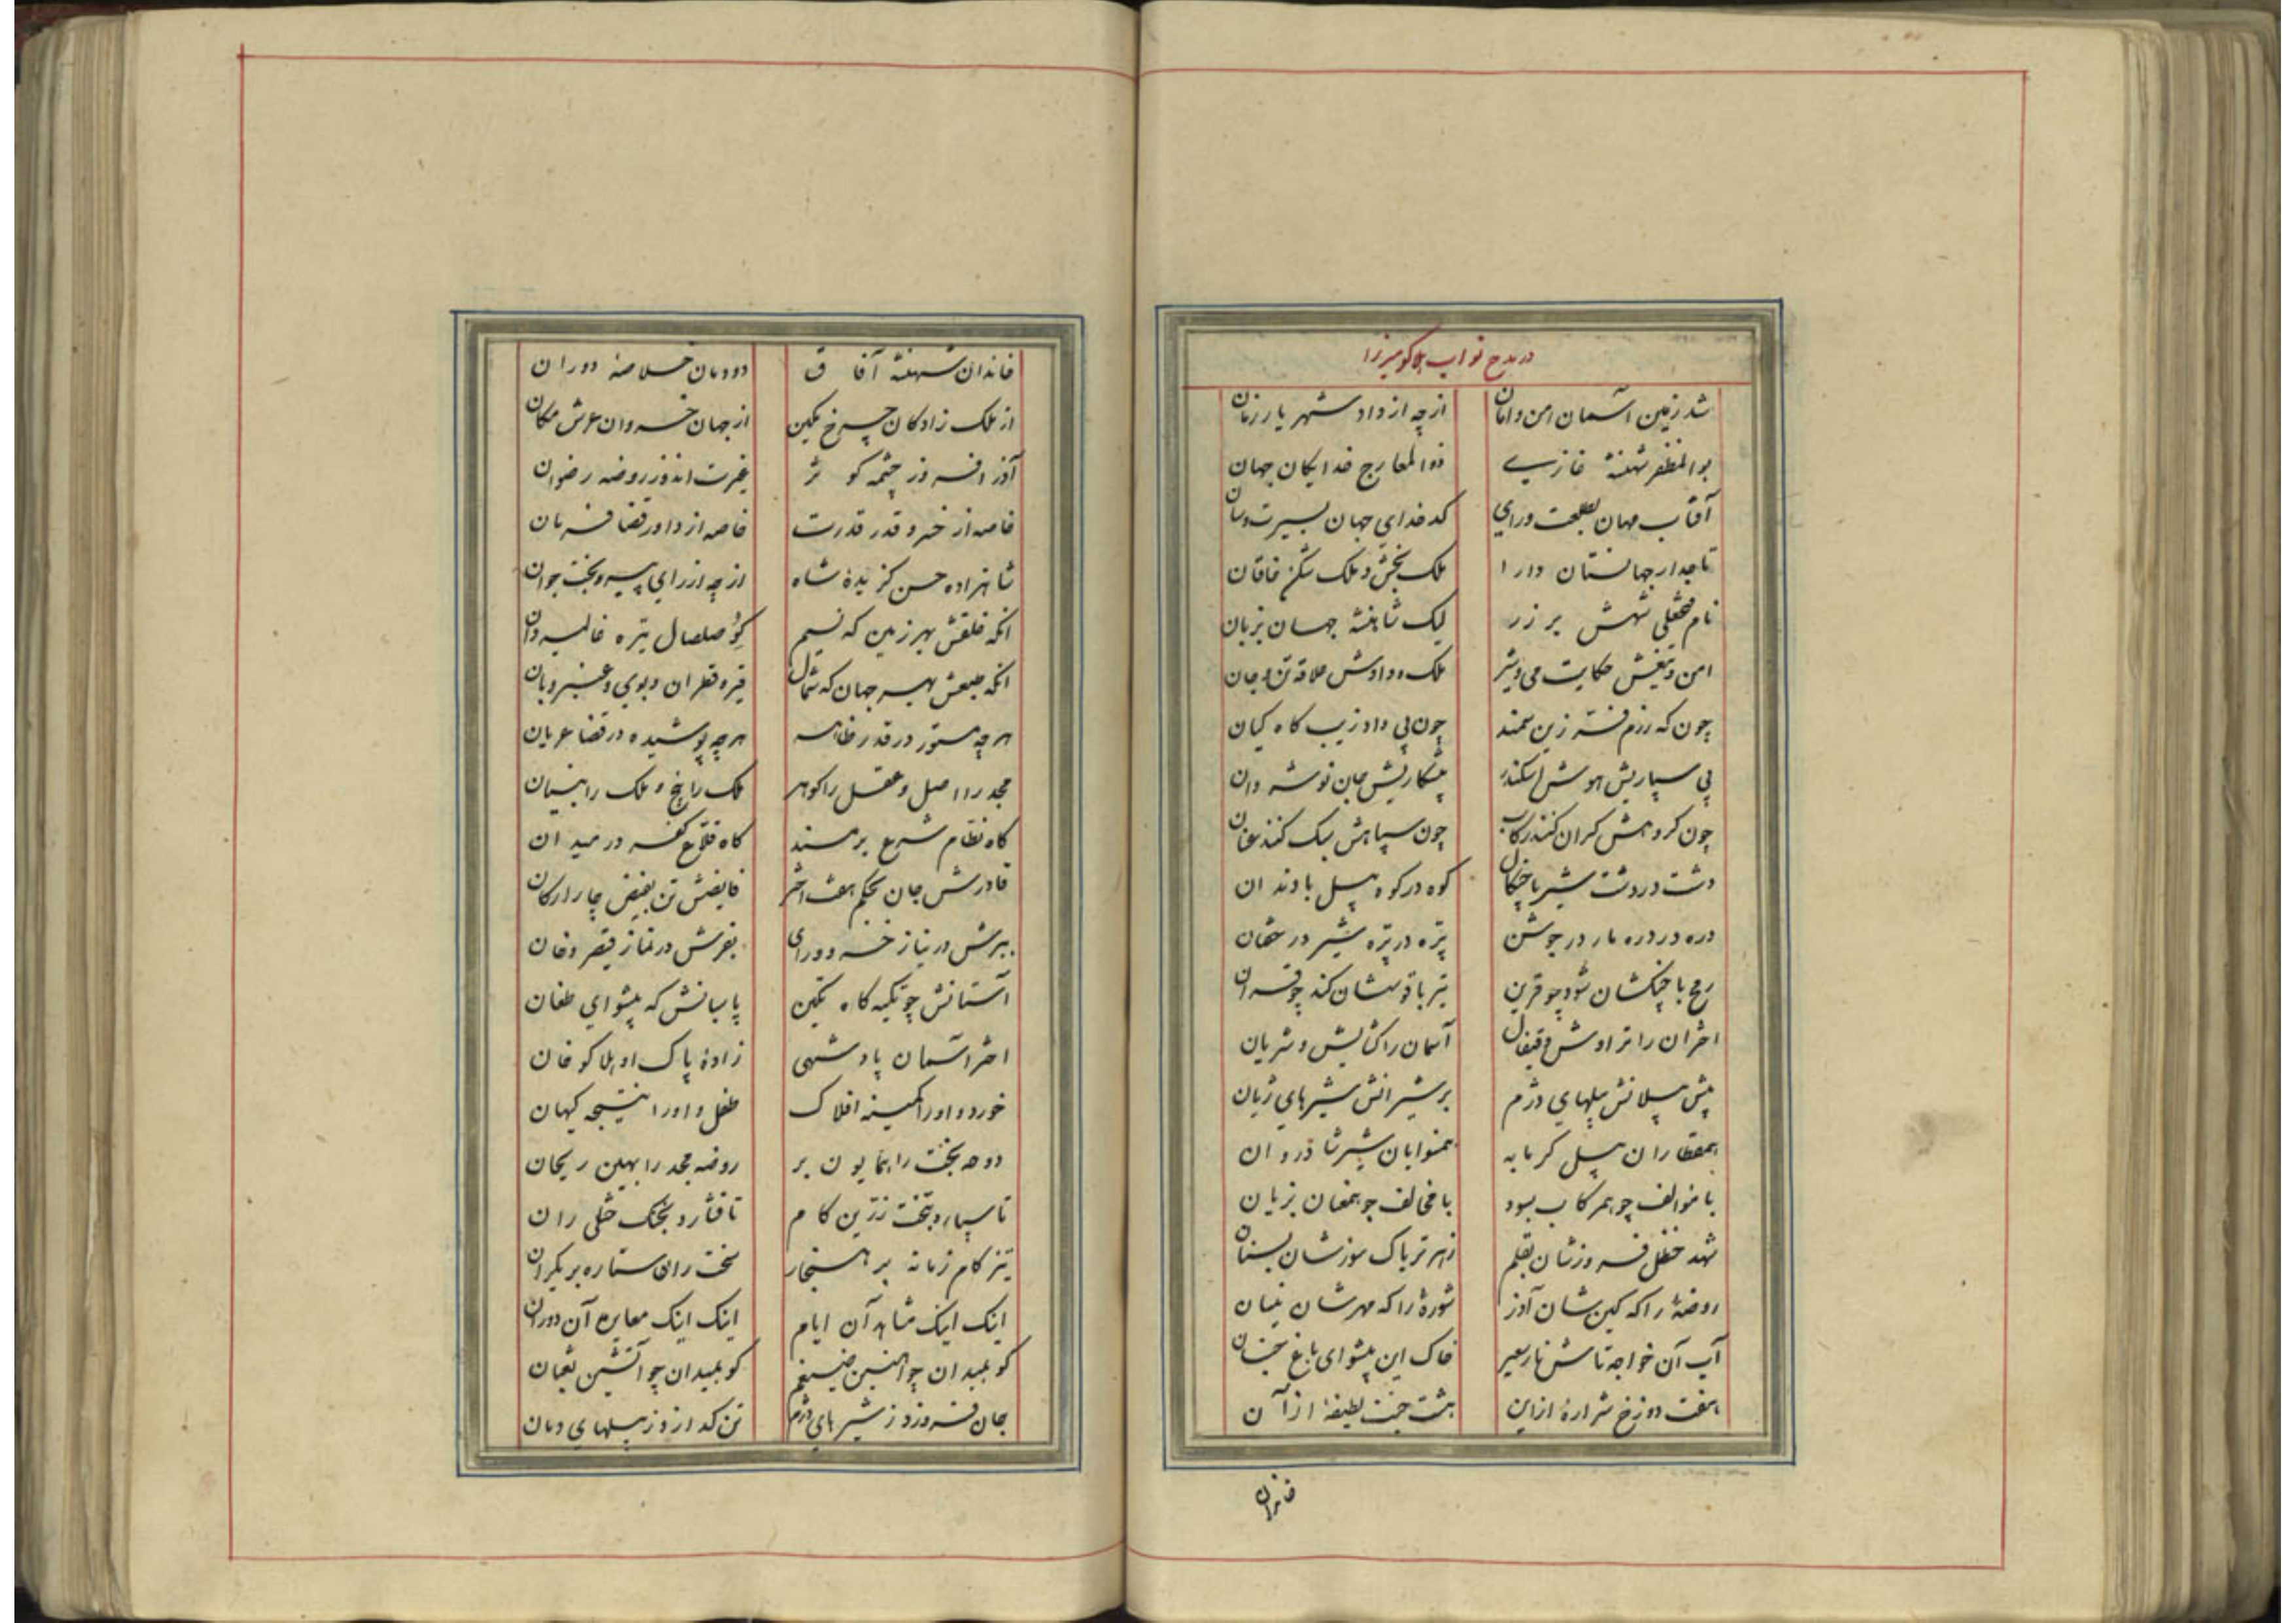 در مدح نواب هلاکو میرزا
شد زمین آسمان امن و امان ازچه از داد شهریار زمان
بوالمظفر شهنشه غازی ذوالمعارج خدایکان جهان
آفتاب مهان بطلعت ورای کدخدای جهان بسیرت وسان
تاجدار جهانستان دارا ملک بخش و ملک شکر خاقان
نام فتحعلی شهش بر زر لیک شاهنشه جهان بزبان
امن و تیغش حکایت می وشیر ملک و دادش علاقه تن و جان
چون که رزم فتنه زین سمند چون پی داد زیب کاه کیان
پی سپاریش هوش اسکندر پیشکاریش جان نوشروان
چون کروهش کران کنند رکاب چون سپاهش سبک کنند عنان
دشت در دشت شیر با چنکال کوه در کوه پیل با دندان
دره در دره مار در جوشن پره در پره شیر در خفتان
رمح با چنکشان شود چو قرین تیر با قوسشان کند چو قران
اختران را تراوش قیفال آسمان را کشایش و شریان
پیش پیلانش پیلهای دژم بر شیرانش شیرهای ژیان
همقطاران پیل کرمابه همنوایان شیر شادروان
با موالف چو همرکاب بسود با مخالف چو همعنان بزیان
شهد حنظل فروزشان بقلم زهر تریاک سوزشان بسنان
روضهٔ را که کین شان آذر شورهٔ را که مهرشان نیسان
آب آن خواجه تاش نار سعیر خاک این پیشوای باغ جنان
هفت دوزخ شرارهٔ از این هشت جنت لطیفهٔ از آن
خاندان
خاندان شهنشه آفاق دودمان خلاصهٔ دوران
از ملک زادکان چرخ نکین از جهان خسروان عرش مکان
آذر افروز چشمه کوثر غیرت اندوز روضه رضوان
خاصه از خسرو قدر قدرت خاصه از داور قضا فرمان
شاهزاده حسن کزیدهٔ شاه ازچه از رای پیر و بخت جوان
انکه خلقش بهر زمین که نسیم کو صلصال تیره غالیه دان
انکه طبعش بهر جهان که شمال قیر و قطران و بوی و عنبر و بان
هرچه مستور در قدر ظاهر هرچه پوشیده در قضا عریان
مجد را اصل و عقل را کوهر ملک را بیخ و ملک را بنیان
کاه نظام شرع بر مسند کاه قلاع کفر در میدان
قادرش جان بحکم هفت اختر فایضش تن بفیض چار ارکان
ببرش در نیاز خسرو و رای بفرش در نماز قیصر و خان
آستانش چو تکیه کاه تکین پاسبانش که پیشوای طغان
اختر آسمان پادشهی زادهٔ پاک او هلاکو خان
خورد و اورا کمینه افلاک طفل و اورا نتیجه کیهان
دوحه بخت را همایون بر روضه مجد را بهین ریحان
تا سپارد بتخت زرین کام تا فشارد بخنک ختلی ران
تیز کام زمانه بر هنجار سخت ران ستاره بر یکران
اینک اینک مشاهد آن ایام اینک اینک معاین آن دوران
کو بمیدان چو آهنین ضیغم کو بمیدان چو آتشین ثعبان
جان فروزد ز شیرهای دژم تن کدازد ز پیلهای دمان